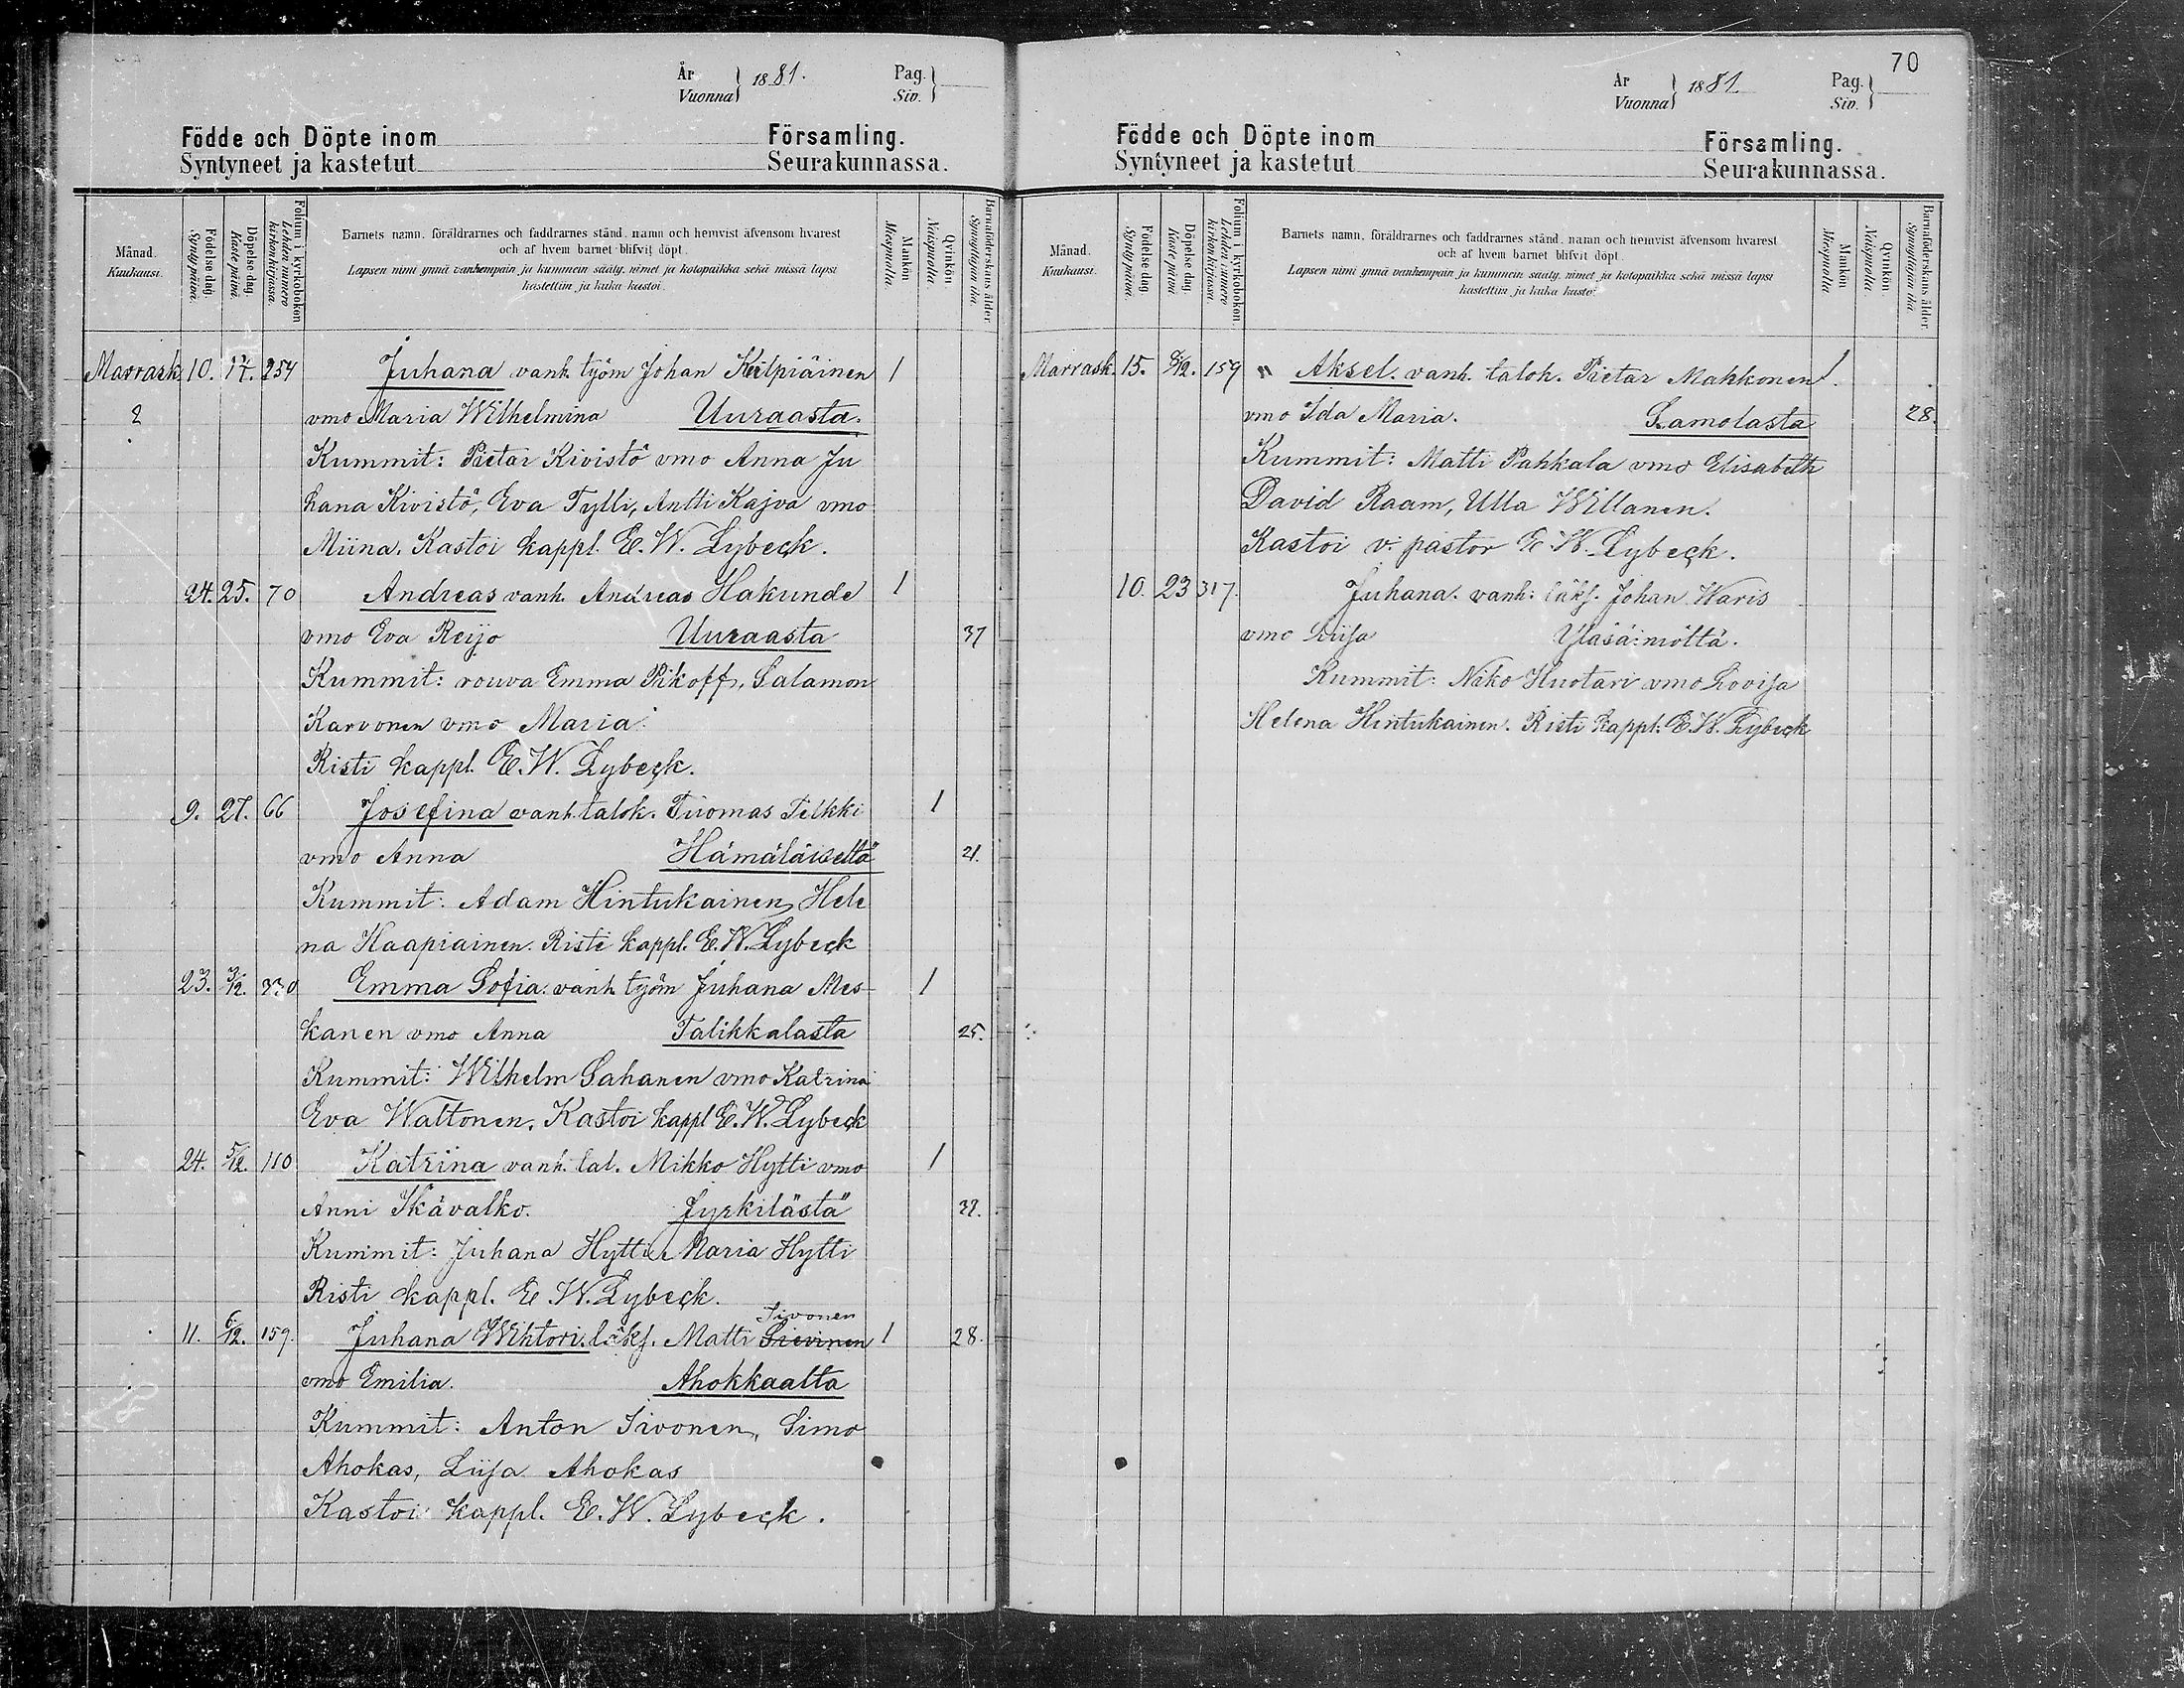 År
Vuonna } 1881.
Pag.
Siv. }
Födde och Döpte inom Församling.
Syntyneet ja kastetut Seurakunnassa.
Månad.
Kuukausi.
Födelse dag.
Synty päivä.
Döpelse dag.
Kaste päivä.
Folium i kyrkoboken
Lehden numero
kirkonkirjassa.
Barnets namn, föräldrarnes och faddrarnes stånd, namn och hemvist äfvensom hvarest
och af hvem barnet blifvit döpt.
Lapsen nimi ynnä vanhempain ja kummein sääty, nimet ja kotopaikka sekä missä lapsi
kastettiin ja kuka kastoi.
Mankön
Miespuolia.
Qvinkön
Naispuolia.
Barnaföderskans ålder.
Synnyttäjän ikä.
Marrask. 10. 17. 254 Juhana vanh. työm Johan Kilpiäinen 1
2 vmo Maria Wilhelmina Uuraasta.
Kummit: Pietar Kivistö vmo Anna Ju
hana Kivistö, Eva Tylli, Antti Kajva vmo
Miina. Kastoi kappl. E. W. Lybeck.
24. 25. 70 Andreas vanh. Andreas Hakunde 1
vmo Eva Reijo Uuraasta 37
Kummit: rouva Emma Pikoff, Salamon
Karvonen vmo Maria.
Risti kappl. E. W. Lybeck.
9. 27. 66 Josefina vanh. talok. Tuomas Tilkki 1
vmo Anna Hämäläiseltä 21.
Kummit: Adam Hintukainen, Hele
na Haapiainen. Risti kappl. E. W. Lybeck
23. 3/12. 330 Emma Sofia. vanh. työm Juhana Mes- 1
kanen vmo Anna Talikkalasta 25.
Kummit: Wilhelm Sahanen vmo Katrina
Eva Waltonen. Kastoi kappl E. W. Lybeck
24. 5/12. 110 Katrina vanh. tal. Mikko Hytti vmo 1
Anni Skävalko. Jyrkilästä
Kummit: Juhana Hytti Maria Hytti
Risti kappl. E. W. Lybeck.
Sivonen
11. 6/12. 159. Juhana Wihtori. läksj. Matti Sievinen 1 28.
vmo Emilia. Ahokkaalta
Kummit: Anton Sivonen, Simo
Ahokas, Liisa Ahokas
Kastoi kappl. E. W. Lybeck.
70
År
Vuonna } 1881.
Pag.
Siv. }
Födde och Döpte inom Församling.
Syntyneet ja kastetut Seurakunnassa.
Månad.
Kuukausi.
Födelse dag.
Synty päivä.
Döpelse dag.
Kaste päivä.
Folium i kyrkoboken.
Lehden numero
kirkonkirjassa.
Barnets namn, föräldrarnes och faddrarnes stånd, namn och hemvist äfvensom hvarest
och af hvem barnet blifvit döpt.
Lapsen nimi ynnä vanhempain ja kummein sääty, nimet ja kotopaikka sekä missä lapsi
kastettiin ja kuka kastoi.
Mankön
Miespuolia
Qvinkön
Naispuolia.
Barnaföderskans ålder.
Synnyttäjän ikä.
Marrask. 15. 8/12. 159 Aksel. vanh. talok. Pietar Makkonen 1.
vmo Ida Maria. Samolasta 28.
Kummit: Matti Pahkala vmo Elisabeth
David Raam, Ulla Willanen.
Kastoi v. pastor E. W. Lybeck.
10. 23 317. Juhana. vanh. läksj. Johan Waris
vmo Liisa Yläsäiniöltä.
Kummit: Niko Huotari vmo Lovisa
Helena Hintukainen. Risti kappl. E. W. Lybeck